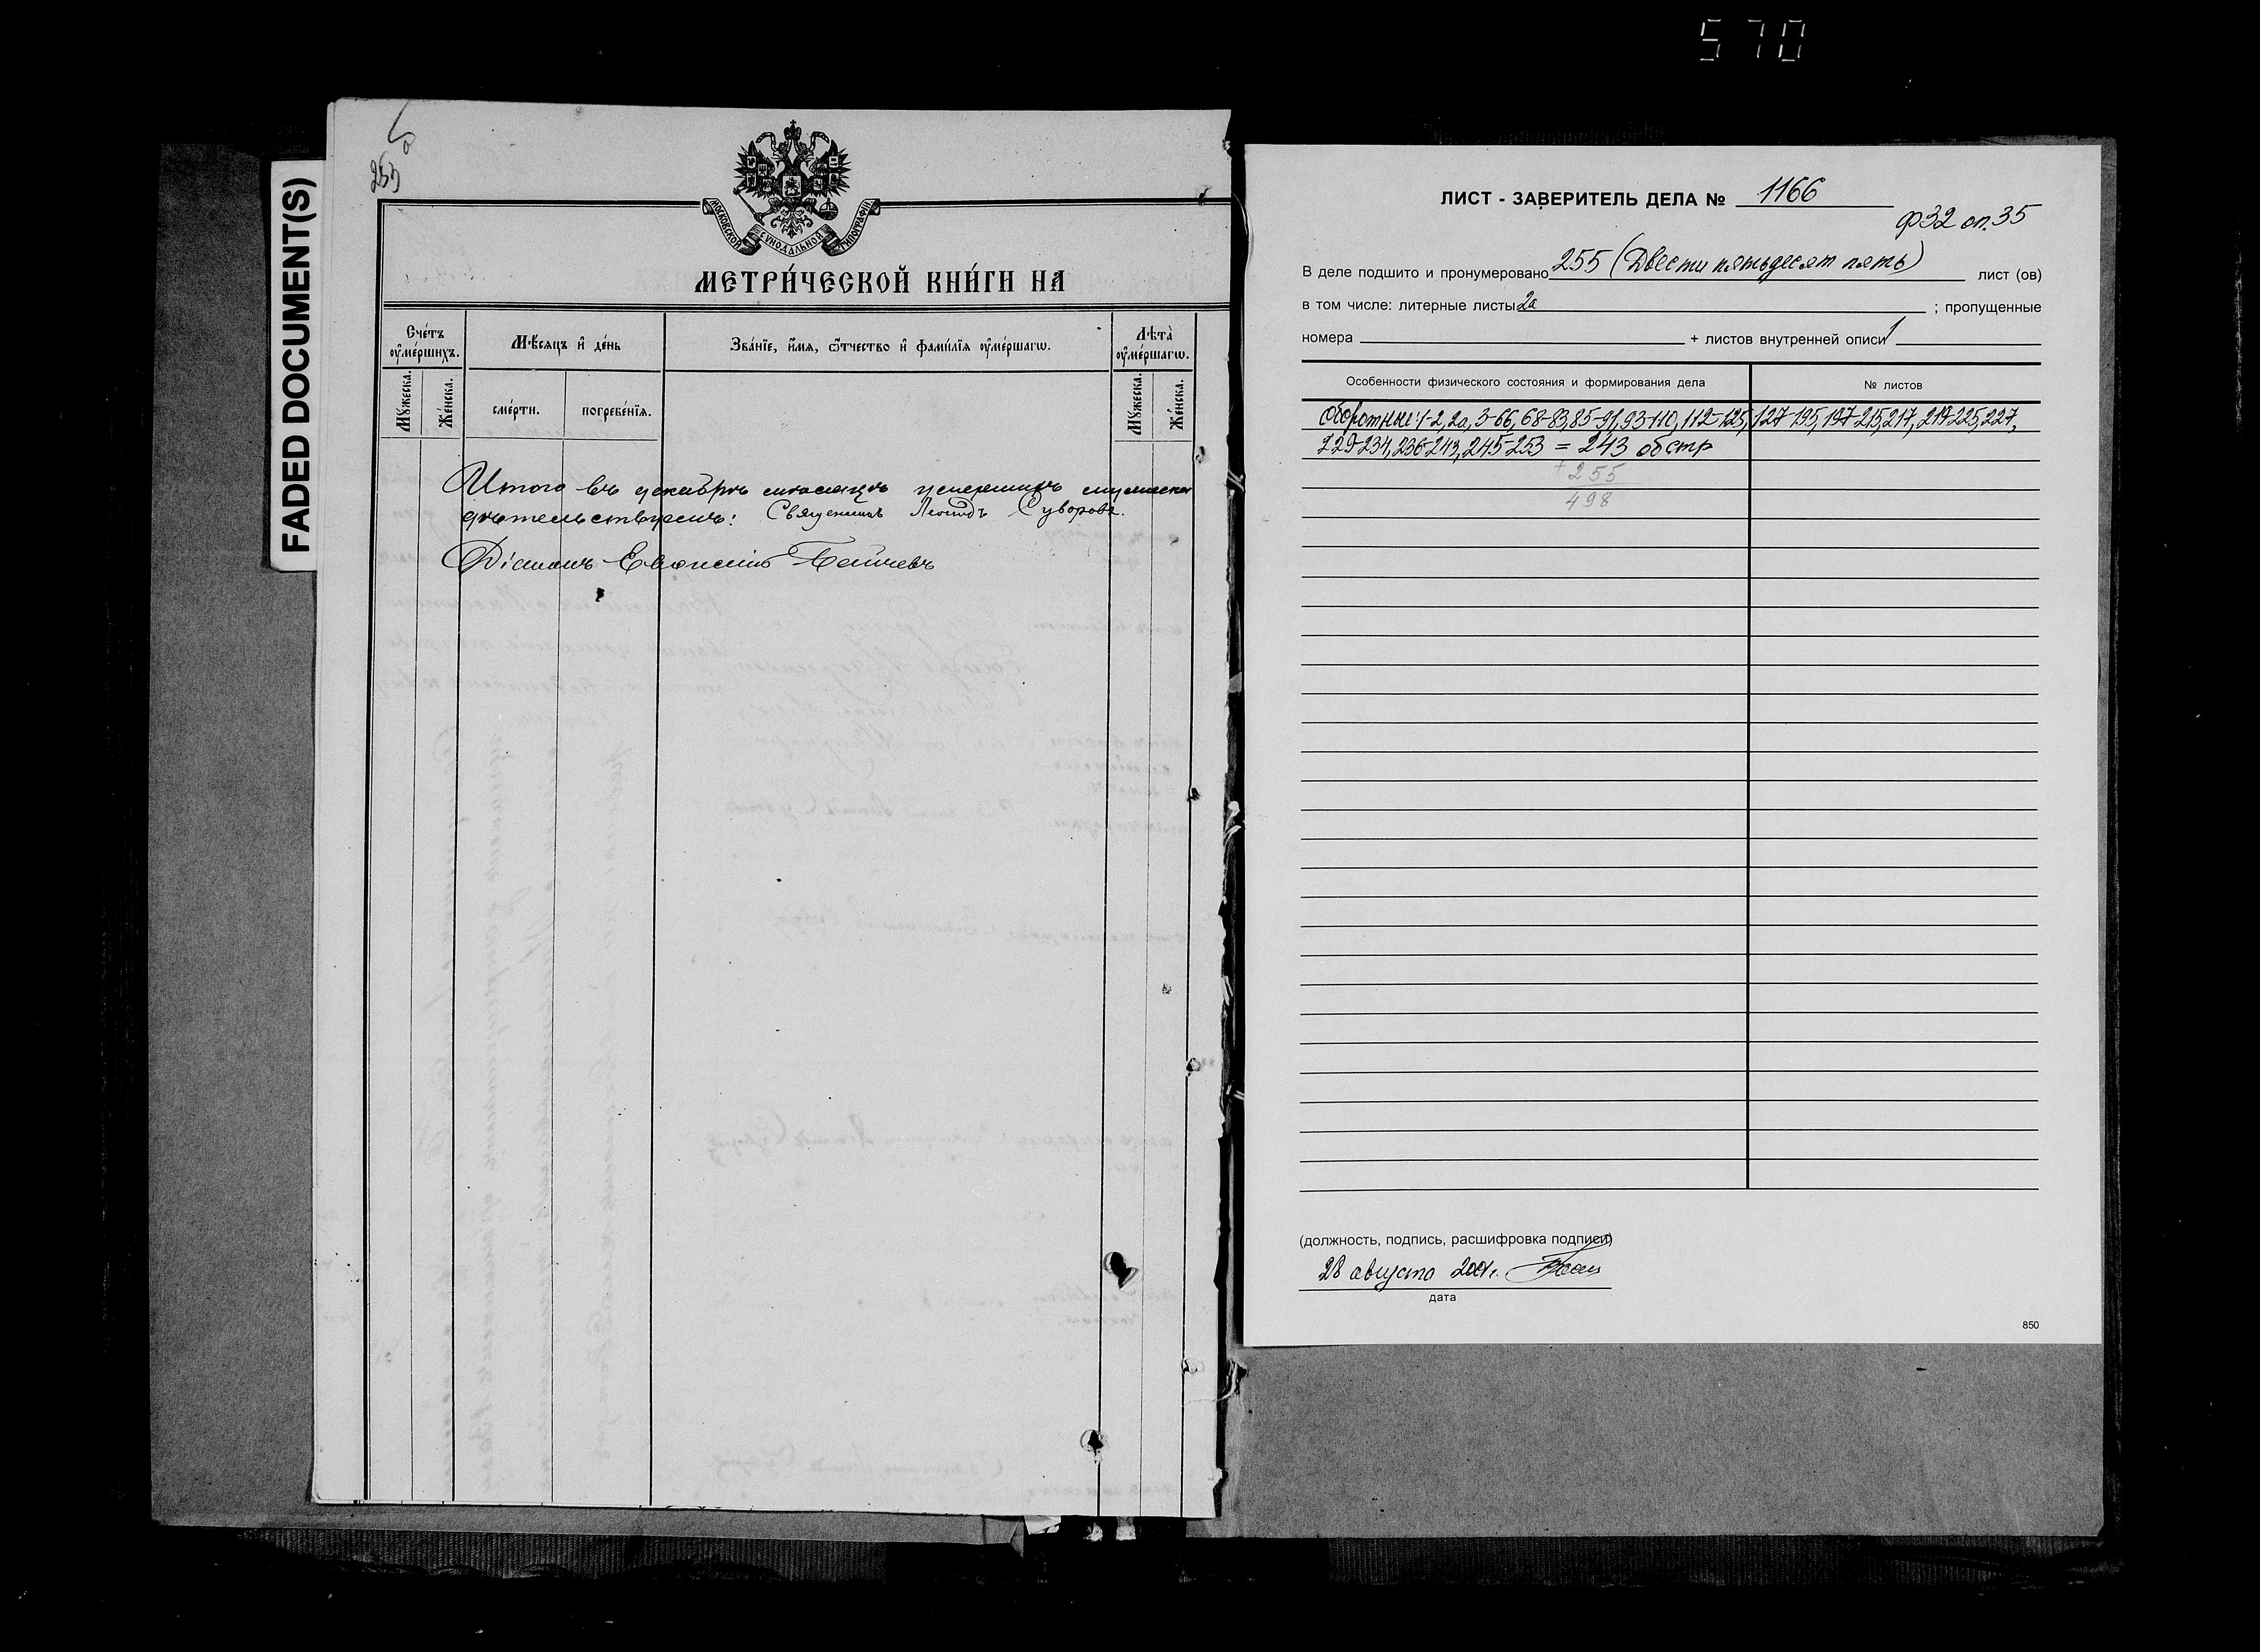 570
FADED DOCUMENT(S)
МОСКОВСКОЙ СѴНОДАЛЬНОЙ ТИПОГРАФІИ
МЕТРИ́ЧЕСКОЙ КНИ́ГИ НА
Сче́тъ ᲂу҆ме́ршихъ.
Мѣ́сяцъ и҆ де́нь
Зва́нїе, и҆́мя, ѻ҆́тчество и҆ фами́лїя ᲂу҆ме́ршагѡ.
Лѣ́та ᲂу҆ме́ршагѡ.
Мꙋ́жеска.
Же́нска.
сме́рти.
погребе́нїѧ.
Мꙋ́жеска.
Же́нска.
Итого въ декабрѣ мѣсяцѣ умершихъ
Священникъ Леонидъ Суворовъ.
Діаконъ
ЛИСТ - ЗАВЕРИТЕЛЬ ДЕЛА № 1166
Ф32 оп.35
В деле подшито и пронумеровано 255 (Двести пятьдесят пять) лист (ов)
в том числе: литерные листы 2а ; пропущенные
номера + листов внутренней описи 1
Особенности физического состояния и формирования дела
№ листов
Оборотные: 1-2, 2а, 3-66, 68-83, 85-91, 93-110, 112-125, 127-195, 197-215, 217, 219-225, 227,
229-234, 236-243, 245-253 = 243 об стр
+ 255
498
(должность, подпись, расшифровка подписи)
28 августа
дата
850